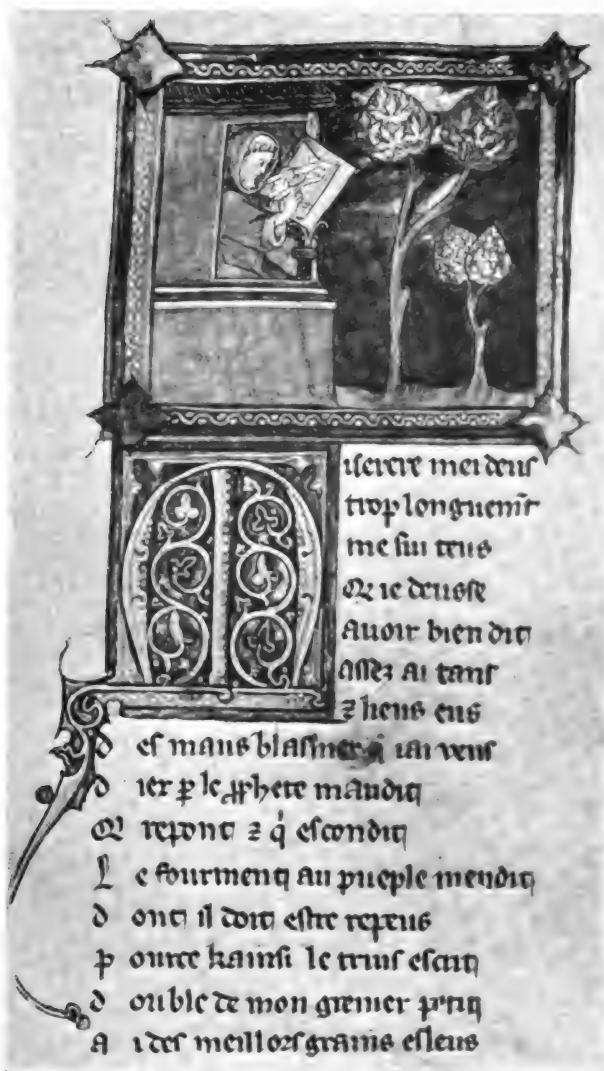 Miserere mei deus
trop longuemt
me sui teus
Q ie deusse
auoir bien dit
assez ai tans
⁊ lieus eus
d es maus blasmer q̇ iai veus
d ier p le ꝓphete maudit
Q repont ⁊ q̇ escondit
L e fourment au pueple mendit
d ont il doit estre repeus
p ource kainsi le truis escrit
d ouble de mon grenier ptit
a i des meillors grains esleus